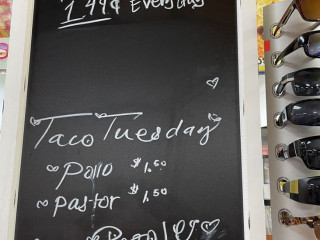 1.49¢ Everyday
Taco Tuesday
Pollo $1.50
Pastor $1.50